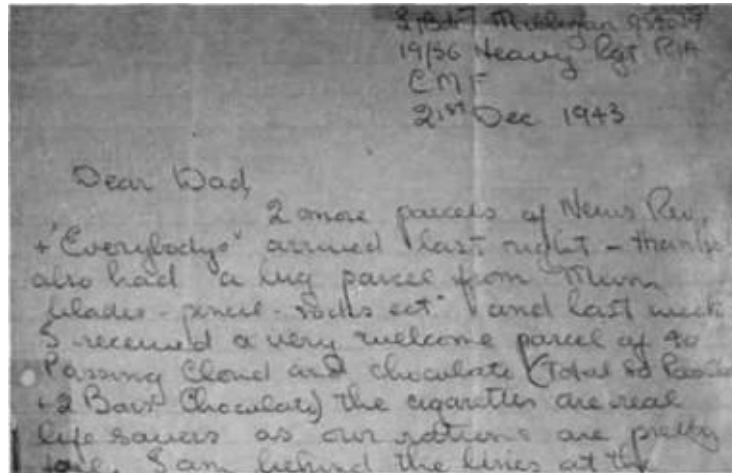 L/Bdr Milligan 954024
19/56 Heavy Rgt R/A
CMF
21st Dec 1943
Dear Dad,
2 more parcels of News Rev,
+ "Everybodys" arrived last night - thanks
also had a big parcel from Mum
blades - pencil - socks ect" and last week
I received a very welcome parcel of 40
Passing Cloud and chocolate (Total 80 Passing
+ 2 Bars Chocolate) the cigarettes are real
life savers as our rations are pretty
I am behind the lines at the